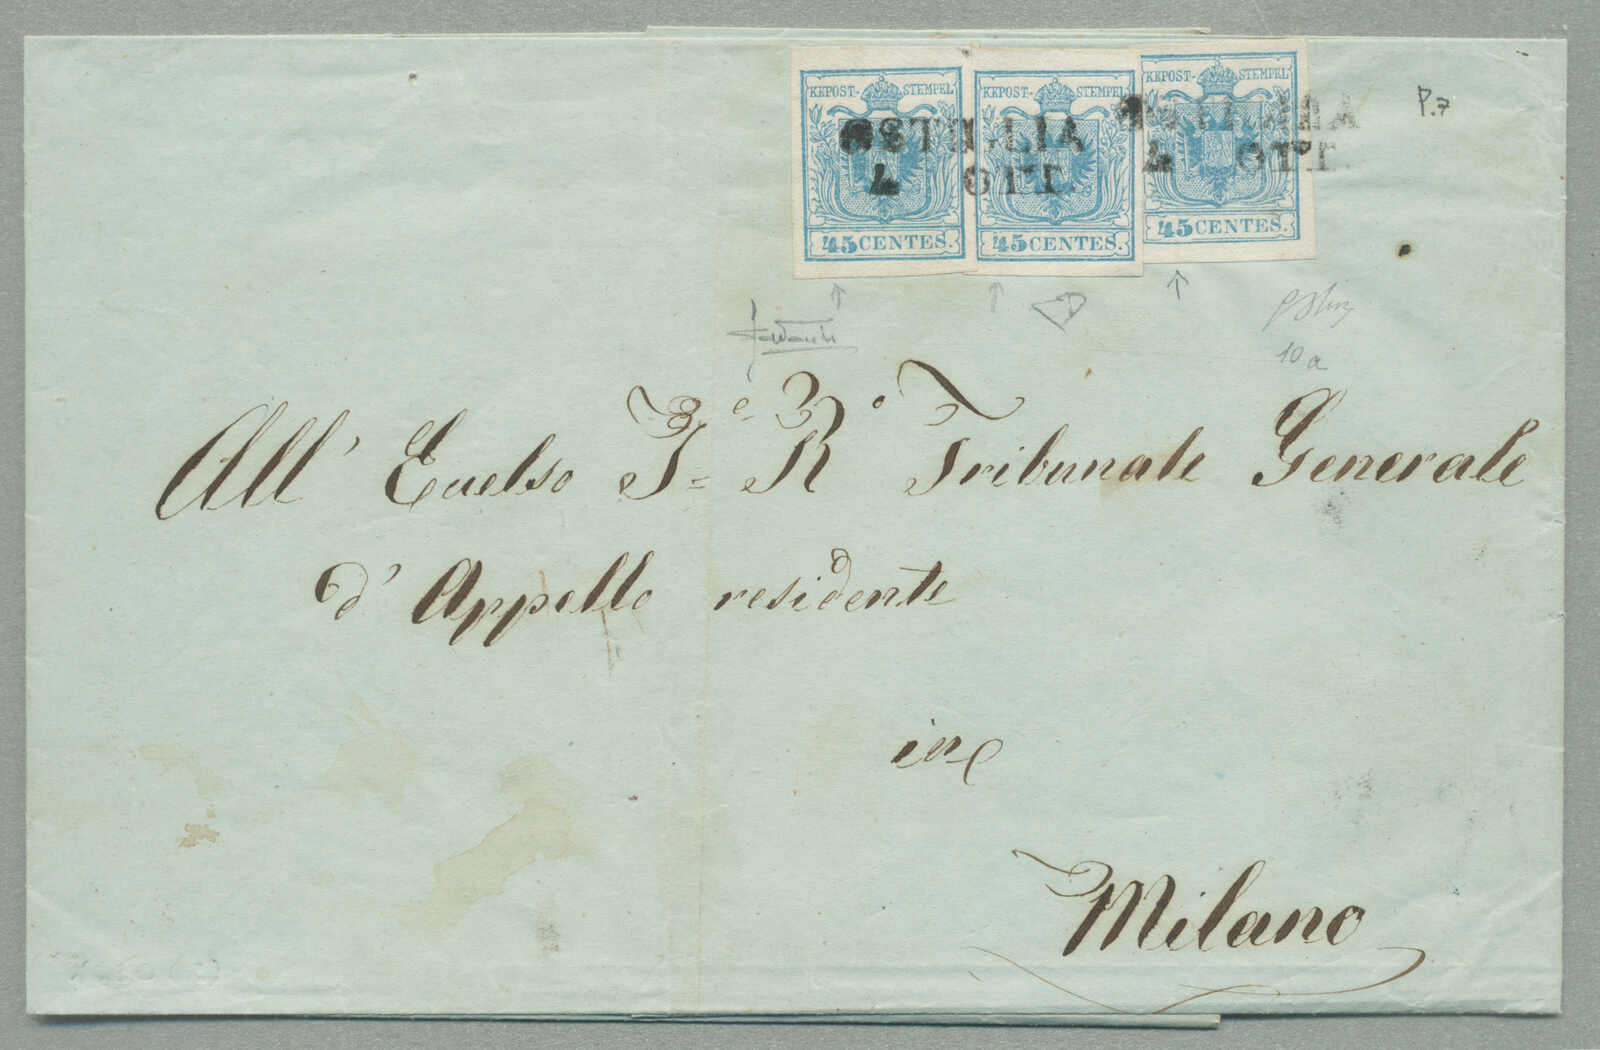 KKPOST- STEMPEL KKPOST- STEMPEL KKPOST- STEMPEL
OSTIGLIA
4 OTT.
OSTIGLIA
4 OTT.
45 CENTES. 45 CENTES. 45 CENTES.
P.7
10a
All' Eccelso I.e R.o Tribunale Generale
d'Appello residente
in
Milano